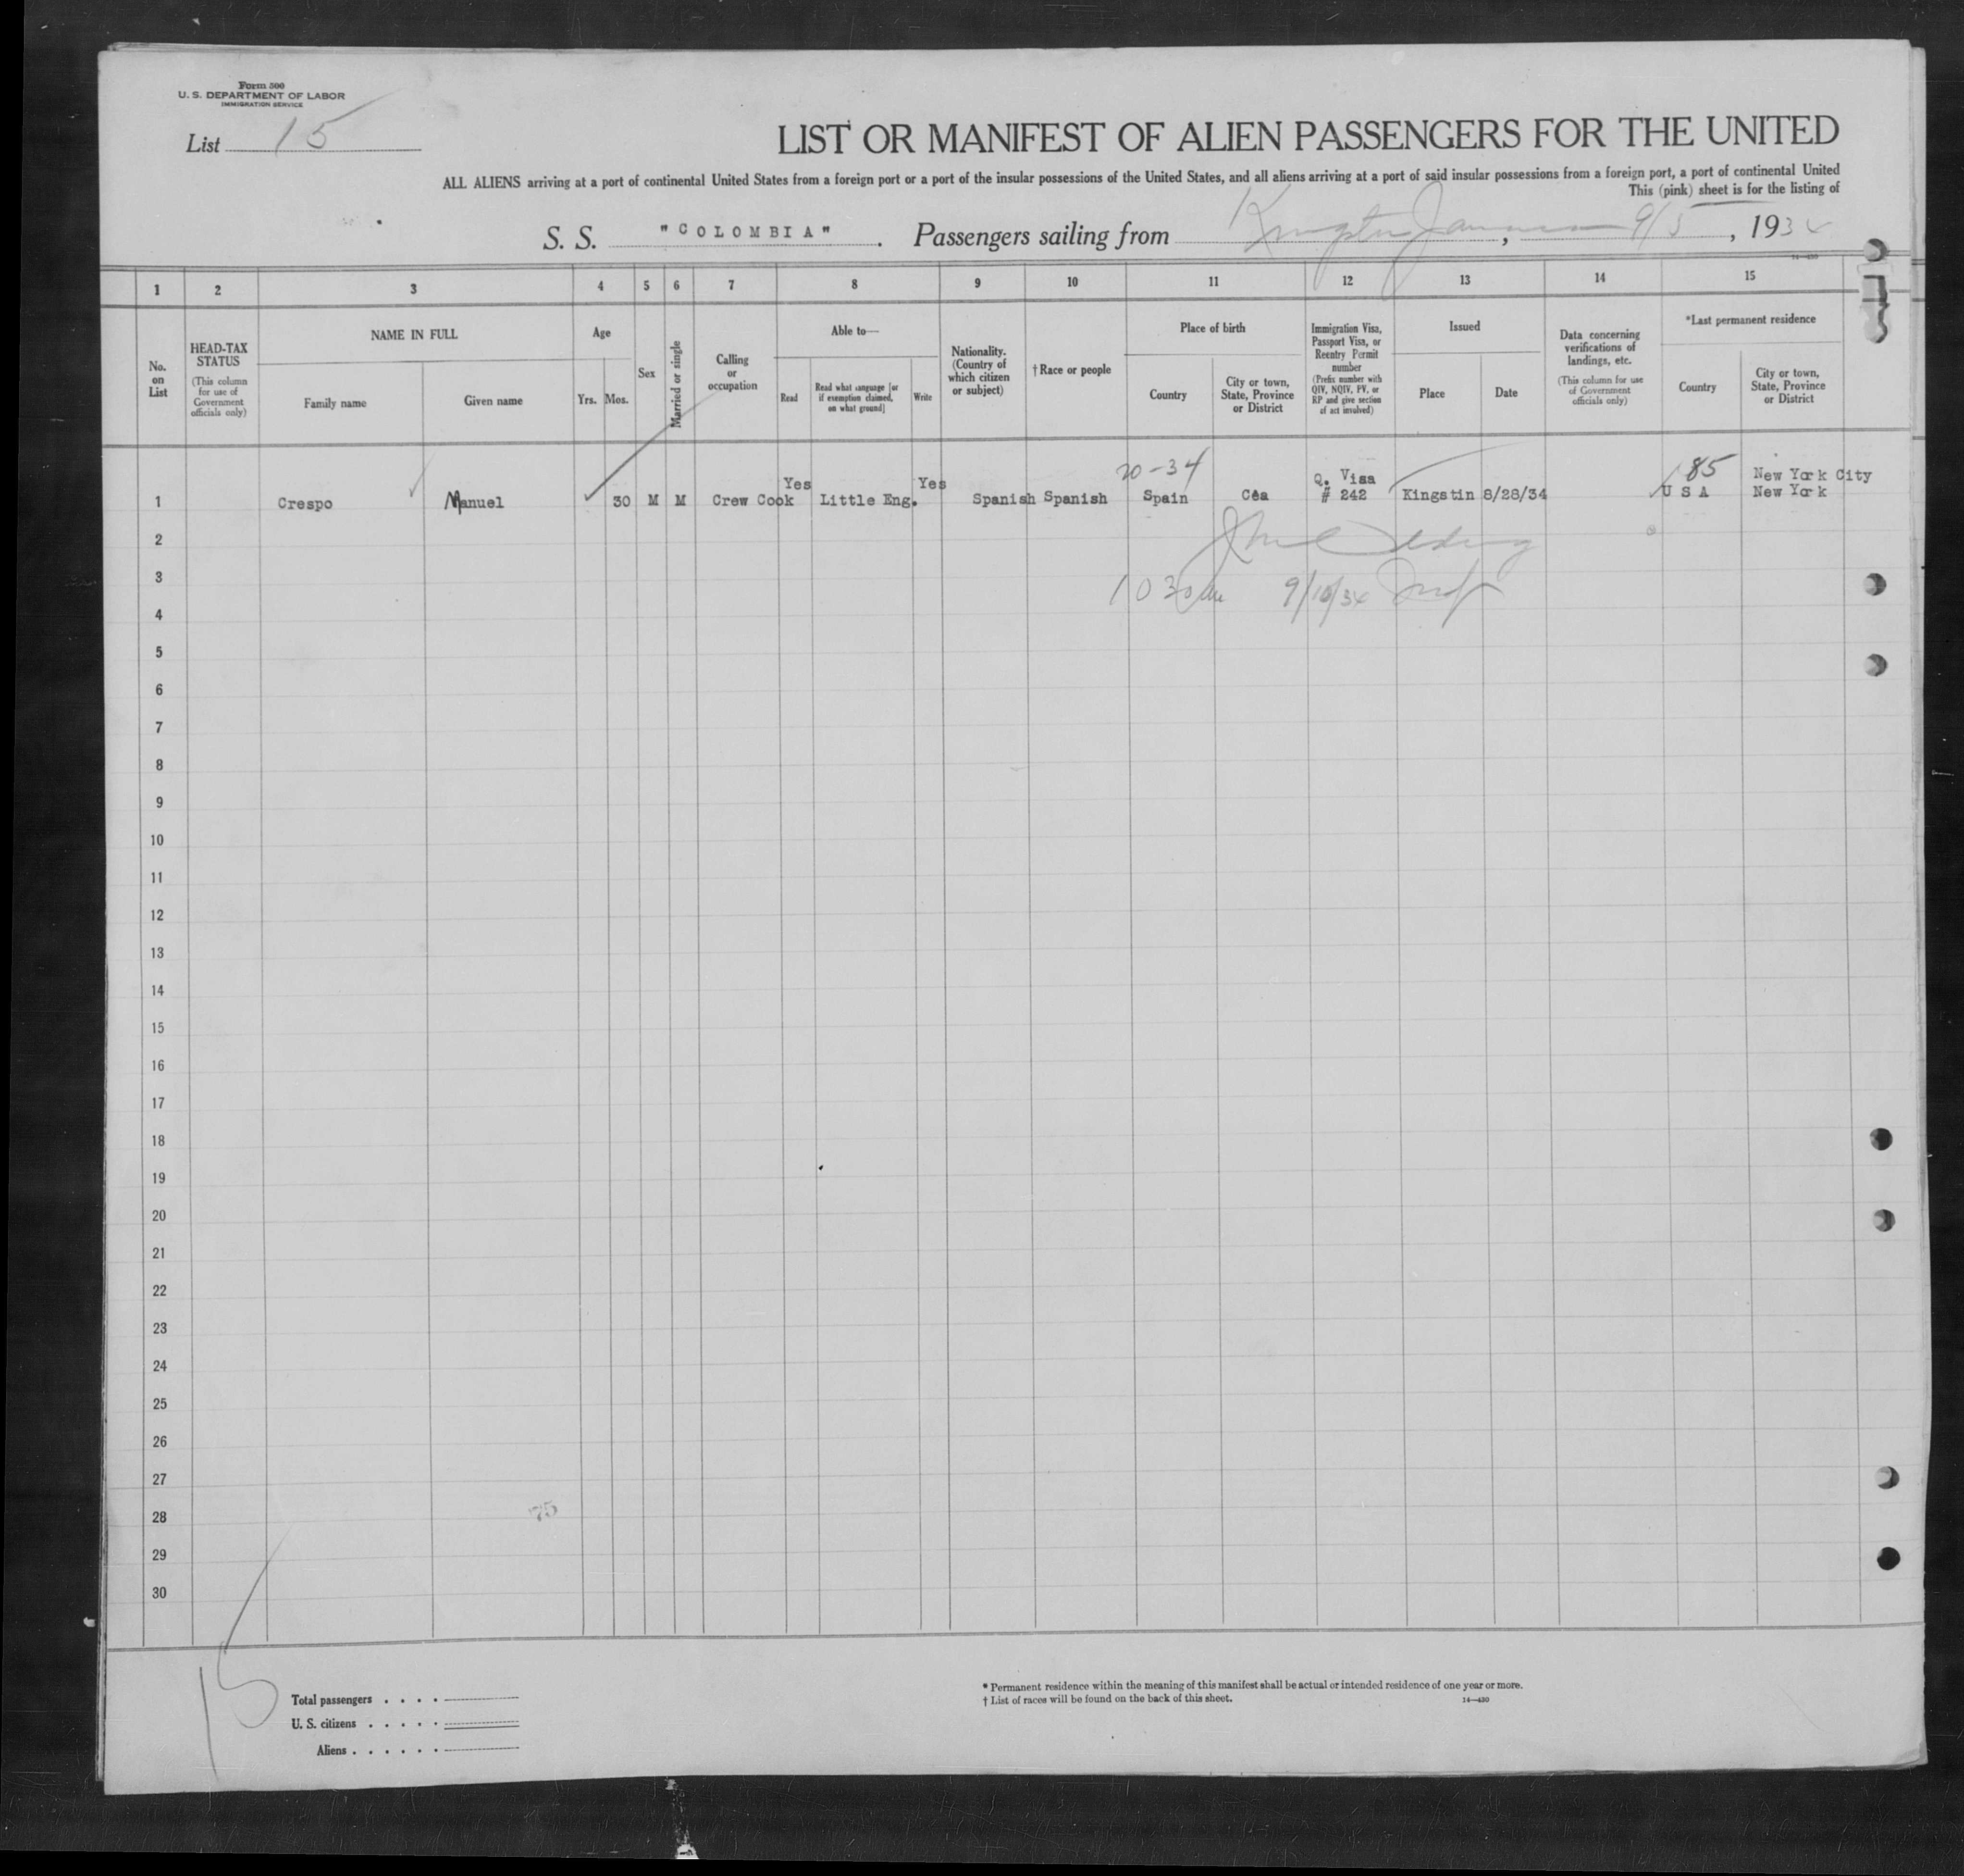 Form 500
U. S. DEPARTMENT OF LABOR
IMMIGRATION SERVICE
List 15
LIST OR MANIFEST OF ALIEN PASSENGERS FOR THE UNITED
ALL ALIENS arriving at a port of continental United States from a foreign port or a port of the insular possessions of the United States, and all aliens arriving at a port of said insular possessions from a foreign port, a port of continental United
This (pink) sheet is for the listing of
S. S. "COLOMBIA". Passengers sailing from Kingston Jamaica, 9/5, 1934
14—430
1 2 3 4 5 6 7 8 9 10 11 12 13 14 15
No. on List
HEAD-TAX STATUS
(This column for use of Government officials only)
NAME IN FULL
Family name
Given name
Age
Yrs. Mos.
Sex
Married or single
Calling or occupation
Able to—
Read
Read what language [or if exemption claimed, on what ground]
Write
Nationality. (Country of which citizen or subject)
†Race or people
Place of birth
Country
City or town, State, Province or District
Immigration Visa, Passport Visa, or Reentry Permit number
(Prefix number with QIV, NQIV, PV, or RP and give section of act involved)
Issued
Place
Date
Data concerning verifications of landings, etc.
(This column for use of Government officials only)
*Last permanent residence
Country
City or town, State, Province or District
20-34 85
Yes Yes Q. Visa New York City
1 Crespo Manuel 30 M M Crew Cook Little Eng. Spanish Spanish Spain Cea # 242 Kingstin 8/28/34 U S A New York
2
3
10 30 am 9/10/34
4
5
6
7
8
9
10
11
12
13
14
15
16
17
18
19
20
21
22
23
24
25
26
27
28
75
29
30
15
Total passengers . . . .
U. S. citizens . . . . .
Aliens . . . . . .
* Permanent residence within the meaning of this manifest shall be actual or intended residence of one year or more.
† List of races will be found on the back of this sheet.
14—430